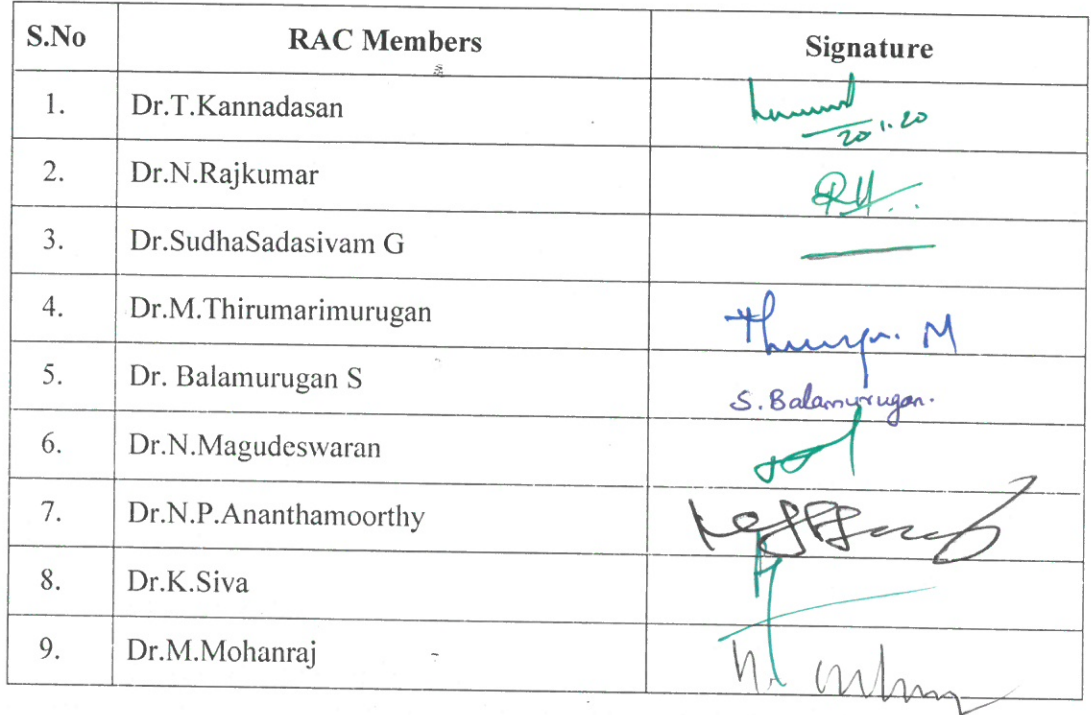 S.No RAC Members Signature
1. Dr.T.Kannadasan
20.1.20
2. Dr.N.Rajkumar
3. Dr.SudhaSadasivam G
4. Dr.M.Thirumarimurugan M
5. Dr. Balamurugan S S.Balamurugan.
6. Dr.N.Magudeswaran
7. Dr.N.P.Ananthamoorthy
8. Dr.K.Siva
9. Dr.M.Mohanraj